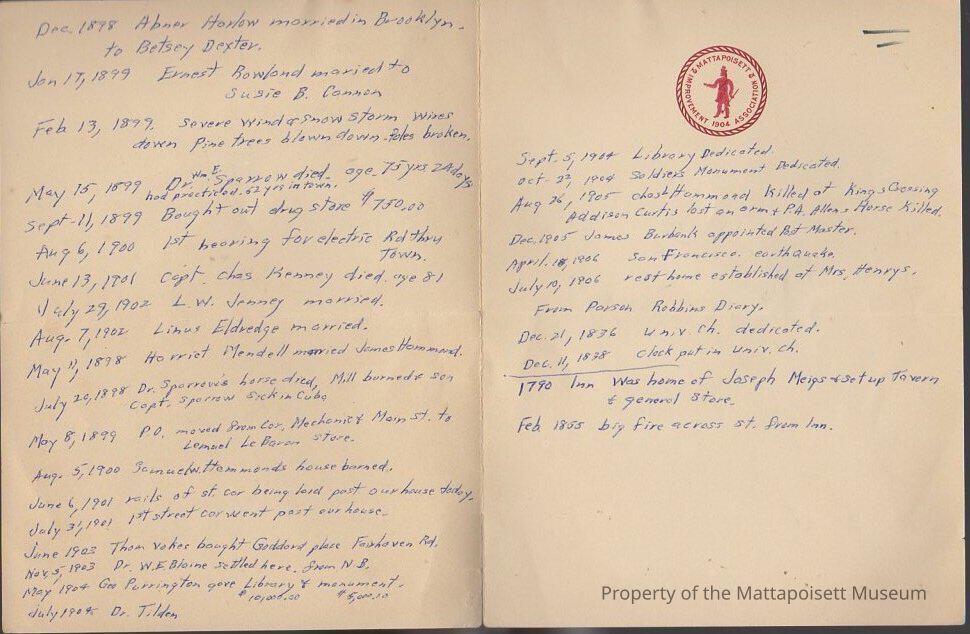 Dec. 1898 Abner Harlow married in Brooklyn.
to Betsey Dexter.
Jan 17, 1899 Ernest Rowland maried to
Susie B. Cannon
Feb 13, 1899. Severe wind & snow storm wires
down Pine trees blown down. Poles broken.
May 15, 1899 Dr. Wm E. Sparrow died. age 75 yrs 24 days
had practiced 52 yrs in town.
Sept-11, 1899 Bought out drug store $750.00
Aug 6, 1900 1st hearing for electric Rd thru
Town.
June 13, 1901 Capt. Chas Kenney died. age 81
July 29, 1902 L.W. Jenney married.
Aug. 7, 1902 Linus Eldredge married.
May 11, 1898 Harriet Mendell married James Hammond.
July 20, 1898 Dr. Sparrow's horse died, Mill burned & son
Capt. Sparrow sick in Cuba
May 8, 1899 P.O. moved from Cor. Mechanic & Main st. to
Lemuel Le Baron store.
Aug. 5, 1900 Samuel W. Hammonds house burned.
June 6, 1901 rails of st. car being laid past our house today.
July 31, 1901 1st street car went past our house.
June 1903 Thom Vokes bought Goddard place Fairhaven Rd.
Nov. 5, 1903 Dr. W.E. Blaine settled here. from N.B.
May 1904 Geo Purrington gave Library & monument.
$10,000.00 $5,000.00
July 1904 Dr. Tilden
MATTAPOISETT
IMPROVEMENT 1904 ASSOCIATION
Sept. 5, 1904 Library Dedicated.
Oct. 22, 1904 Soldiers Monument Dedicated.
Aug 26, 1905 Chas Hammond Killed at Kings Crossing
Addison Curtis lost an arm & P.A. Allens Horse Killed.
Dec. 1905 James Burbank appointed Post Master.
April. 18, 1906 San Francisco. earthquake.
July 10, 1906 rest home established at Mrs. Henrys.
From Parson Robbins Diary.
Dec. 21, 1836 Univ. Ch. dedicated.
Dec. 11, 1838 Clock put in Univ. Ch.
1790 Inn Was home of Joseph Meigs & set up Tavern
& general Store.
Feb. 1855 big fire across st. from Inn.
Property of the Mattapoisett Museum